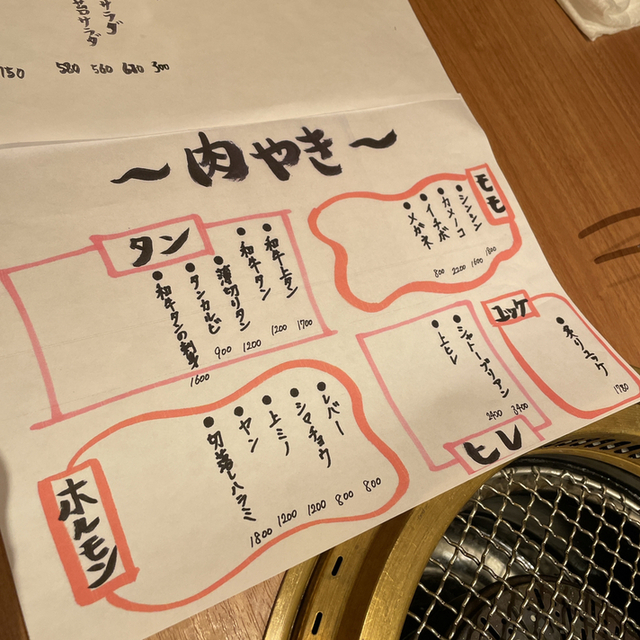 サラダ
580 560 680 300
~肉やき~
モモ
シンシン 800
カメノコ 1600
イチボ 2200
メガネ 800
タン
和牛上タン 1700
和牛タン 1200
薄切りタン 1200
タンカルビ 900
和牛タンの刺身 1600
ユッケ
ネリユッケ 1780
ヒレ
シャトーブリアン 3400
上ヒレ 2400
ホルモン
レバー 800
シロチョウ 800
上ミノ 1200
ヤン 1200
切落しハラミ 1800